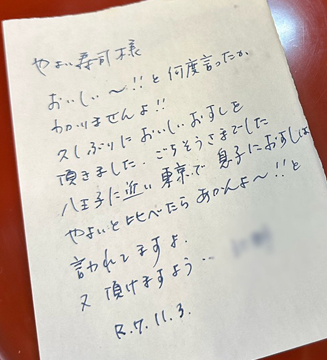 やよい寿司様
おいしい〜!!と何度言ったか
わかりませんよ!!
久しぶりにおいしいおすしを
頂きました.ごちそうさまでした
八王子に近い東京で息子におすしは
やよいと比べたらあかんよ〜!!と
言われてますよ.
又頂けますよう...
R.7.11.3.